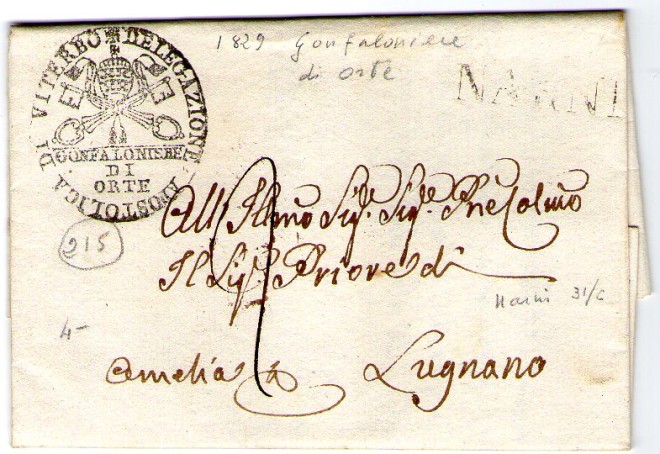 DELEGAZIONE APOSTOLICA DI VITERBO
GONFALONIERE
DI
ORTE
1829 Gonfaloniere
di Orte
NARNI
215
All' Illmo Sigr. Sigr. Pne Colmo
Il Sigr. Priore di
Narni 31/C
4-
Amelia
Lugnano